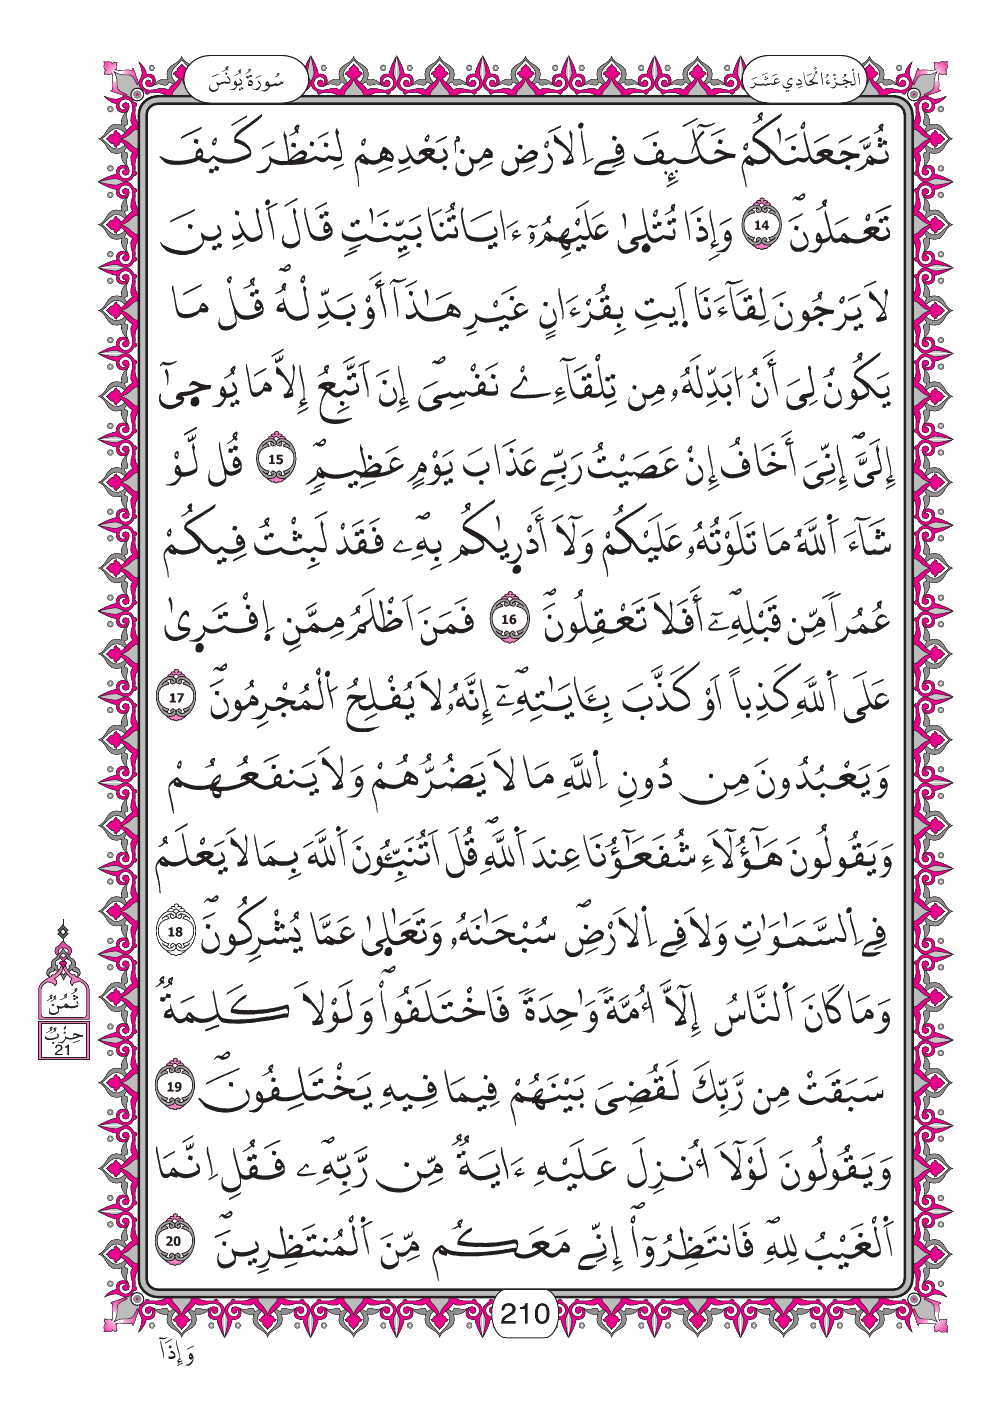 الْجُزْءُ الْحَادِي عَشَرَ
سُورَةُ يُونُسَ
ثُمَّ جَعَلْنَٰكُمْ خَلَٰٓئِفَ فِے اِ۬لَارْضِ مِنۢ بَعْدِهِمْ لِنَنظُرَ كَيْفَ
تَعْمَلُونَۖ 14 وَإِذَا تُتْل۪يٰ عَلَيْهِمُۥٓ ءَايَاتُنَا بَيِّنَٰتٖ قَالَ اَ۬لذِينَ
لَا يَرْجُونَ لِقَآءَنَا اَ۪يتِ بِقُرْءَانٍ غَيْرِ هَٰذَآ أَوْ بَدِّلْهُۖ قُلْ مَا
يَكُونُ لِيَ أَنُ ا۟بَدِّلَهُۥ مِن تِلْقَآءِےْ نَفْسِيَۖ إِنَ اَتَّبِعُ إِلَّا مَا يُوح۪يٰٓ
إِلَيَّۖ إِنِّيَ أَخَافُ إِنْ عَصَيْتُ رَبِّے عَذَابَ يَوْمٍ عَظِيمٖۖ 15 قُل لَّوْ
شَآءَ اَ۬للَّهُ مَا تَلَوْتُهُۥ عَلَيْكُمْ وَلَآ أَدْر۪يٰكُم بِهِۦۖ فَقَدْ لَبِثْتُ فِيكُمْ
عُمُراٗ مِّن قَبْلِهِۦٓۖ أَفَلَا تَعْقِلُونَۖ 16 فَمَنَ اَظْلَمُ مِمَّنِ اِ۪فْتَر۪يٰ
عَلَى اَ۬للَّهِ كَذِباً اَوْ كَذَّبَ بِـَٔايَٰتِهِۦٓۖ إِنَّهُۥ لَا يُفْلِحُ اُ۬لْمُجْرِمُونَۖ 17
وَيَعْبُدُونَ مِن دُونِ اِ۬للَّهِ مَا لَا يَضُرُّهُمْ وَلَا يَنفَعُهُمْ
وَيَقُولُونَ هَٰٓؤُلَآءِ شُفَعَٰٓؤُنَا عِندَ اَ۬للَّهِۖ قُلَ اَتُنَبِّـُٔونَ اَ۬للَّهَ بِمَا لَا يَعْلَمُ
فِے اِ۬لسَّمَٰوَٰتِ وَلَا فِے اِ۬لَارْضِۖ سُبْحَٰنَهُۥ وَتَعَٰل۪يٰ عَمَّا يُشْرِكُونَۖ 18
وَمَا كَانَ اَ۬لنَّاسُ إِلَّآ أُمَّةٗ وَٰحِدَةٗ فَاخْتَلَفُواْۖ وَلَوْلَا كَلِمَةٞ
سَبَقَتْ مِن رَّبِّكَ لَقُضِيَ بَيْنَهُمْ فِيمَا فِيهِ يَخْتَلِفُونَۖ 19
وَيَقُولُونَ لَوْلَآ أُنزِلَ عَلَيْهِ ءَايَةٞ مِّن رَّبِّهِۦۖ فَقُلِ اِنَّمَا
اَ۬لْغَيْبُ لِلهِۖ فَانتَظِرُوٓاْۖ إِنِّے مَعَكُم مِّنَ اَ۬لْمُنتَظِرِينَۖ 20
ثُمُنُ
حِزْبُ
21
210
وَإِذَآ